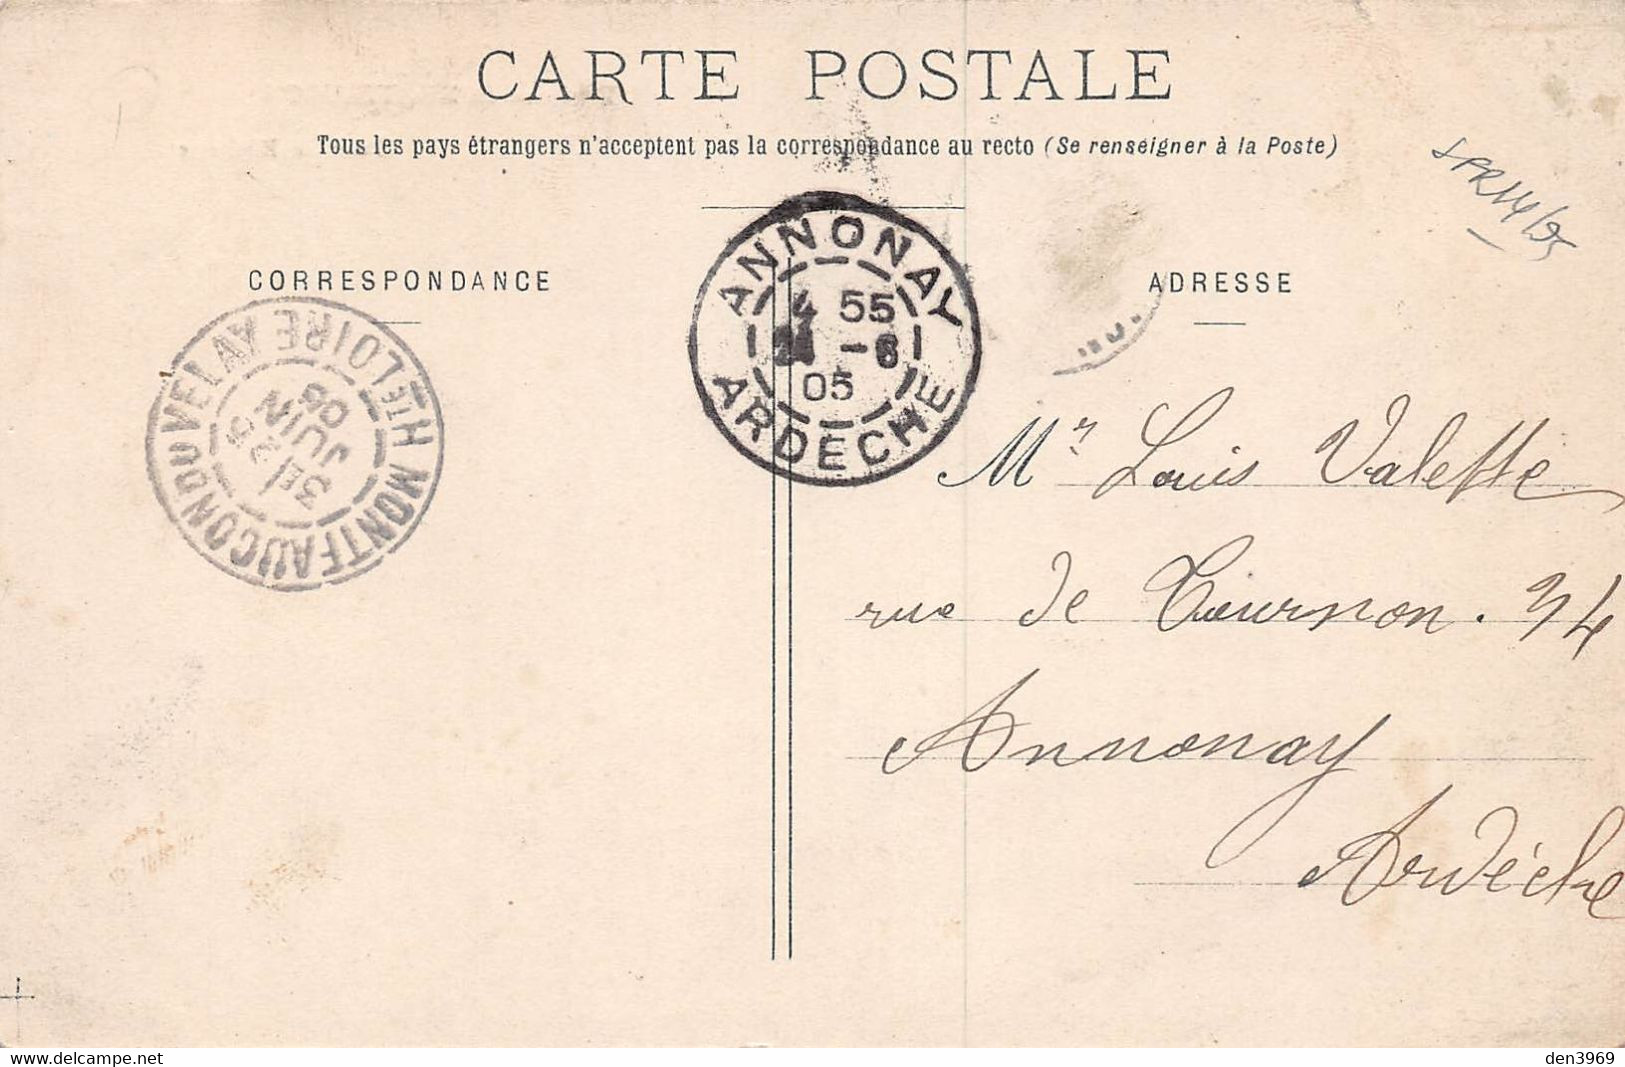 CARTE POSTALE
Tous les pays étrangers n'acceptent pas la correspondance au recto (Se renseigner à la Poste)
CORRESPONDANCE
ADRESSE
ANNONAY
4 55
-6
05
ARDECHE
MONTFAUCON DU VELAY HTE LOIRE
3E
JUIN
05
Mr Louis Valette
rue de Tournon. 34
Annonay
Ardèche
www.delcampe.net
den3969